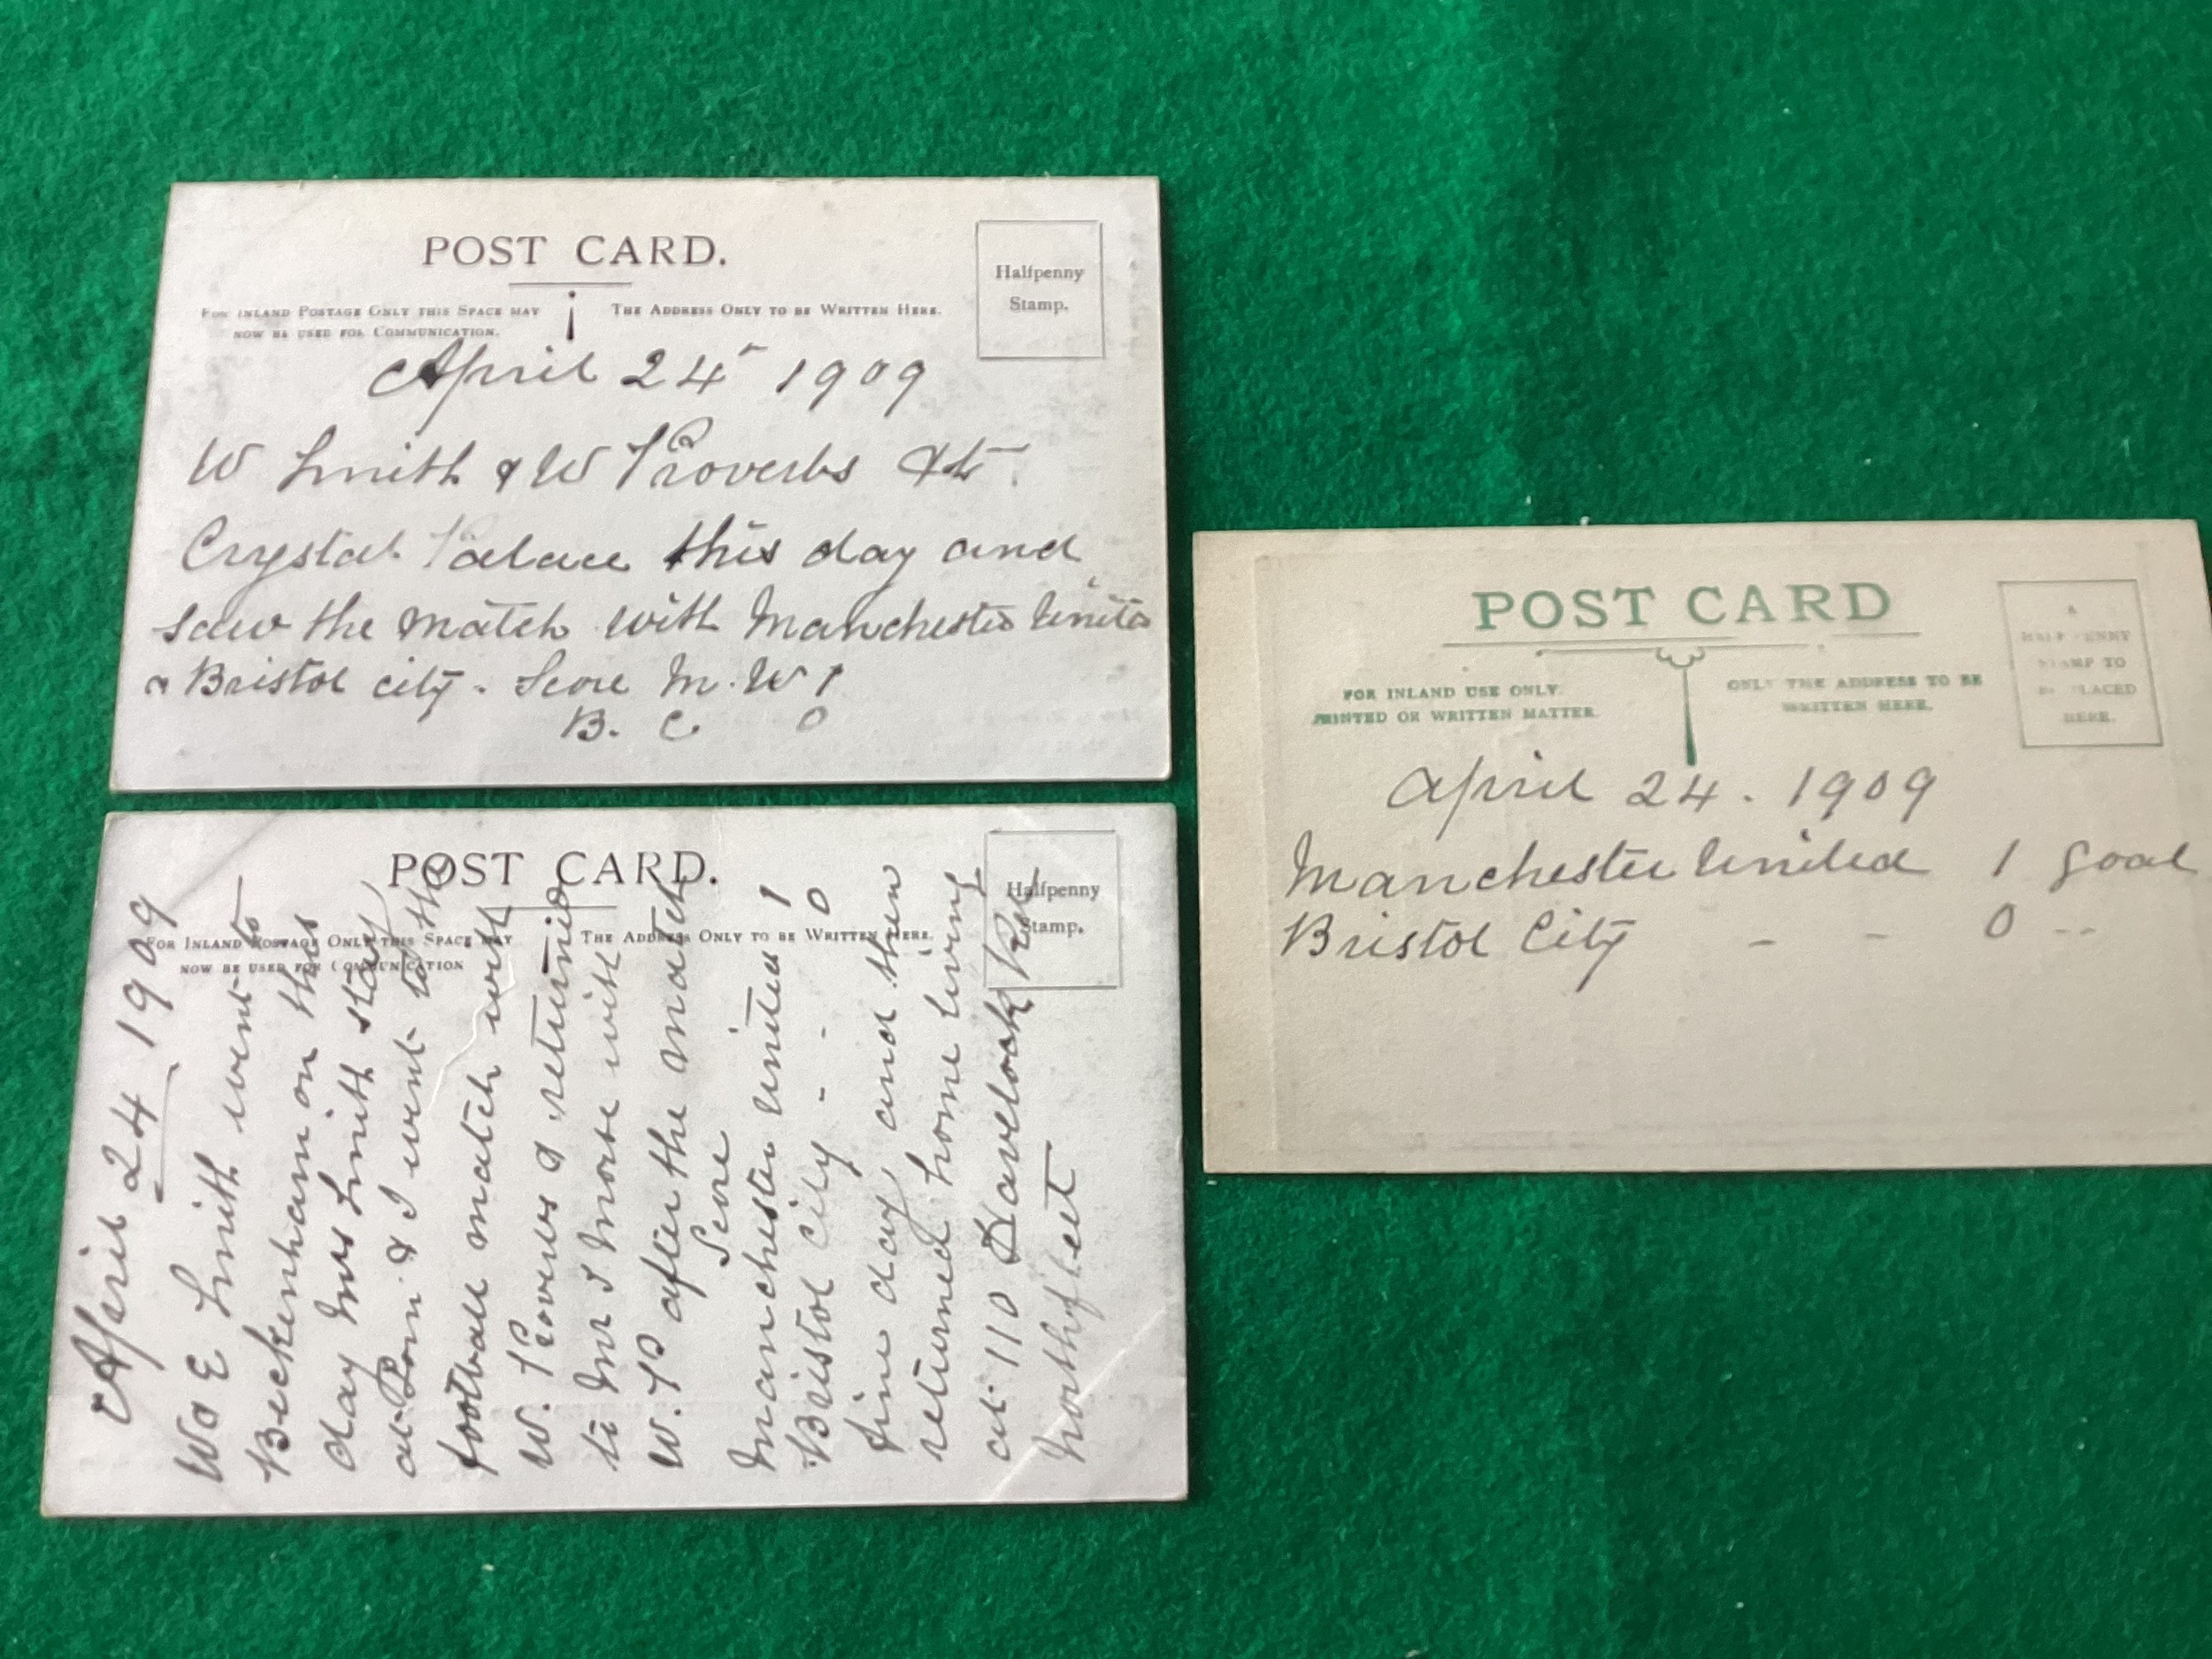 POST CARD.
Halfpenny
Stamp.
FOR INLAND POSTAGE ONLY THIS SPACE MAY
NOW BE USED FOR COMMUNICATION.
THE ADDRESS ONLY TO BE WRITTEN HERE.
April 24 1909
W Smith & W Proverbs At
Crystal Palace this day and
saw the match with Manchester United
& Bristol city. Score M. W 1
B. C. 0
POST CARD.
Halfpenny
Stamp.
FOR INLAND POSTAGE ONLY THIS SPACE MAY
NOW BE USED FOR COMMUNICATION
THE ADDRESS ONLY TO BE WRITTEN HERE.
April 24 1909
W & E Smith went to
Beckenham on this
day Mrs Smith stay
at & I went to the
football match with
W. & returned
to Mr with
W. P after the match
Score
Manchester United 1
Bristol City - - 0
fine day and then
returned home living
at 110 Havelock Rd
Northfleet
POST CARD
A
HALFPENNY
STAMP TO
BE PLACED
HERE.
FOR INLAND USE ONLY.
PRINTED OR WRITTEN MATTER.
ONLY THE ADDRESS TO BE
WRITTEN HERE.
April 24. 1909
Manchester United 1 goal
Bristol City - - 0 --